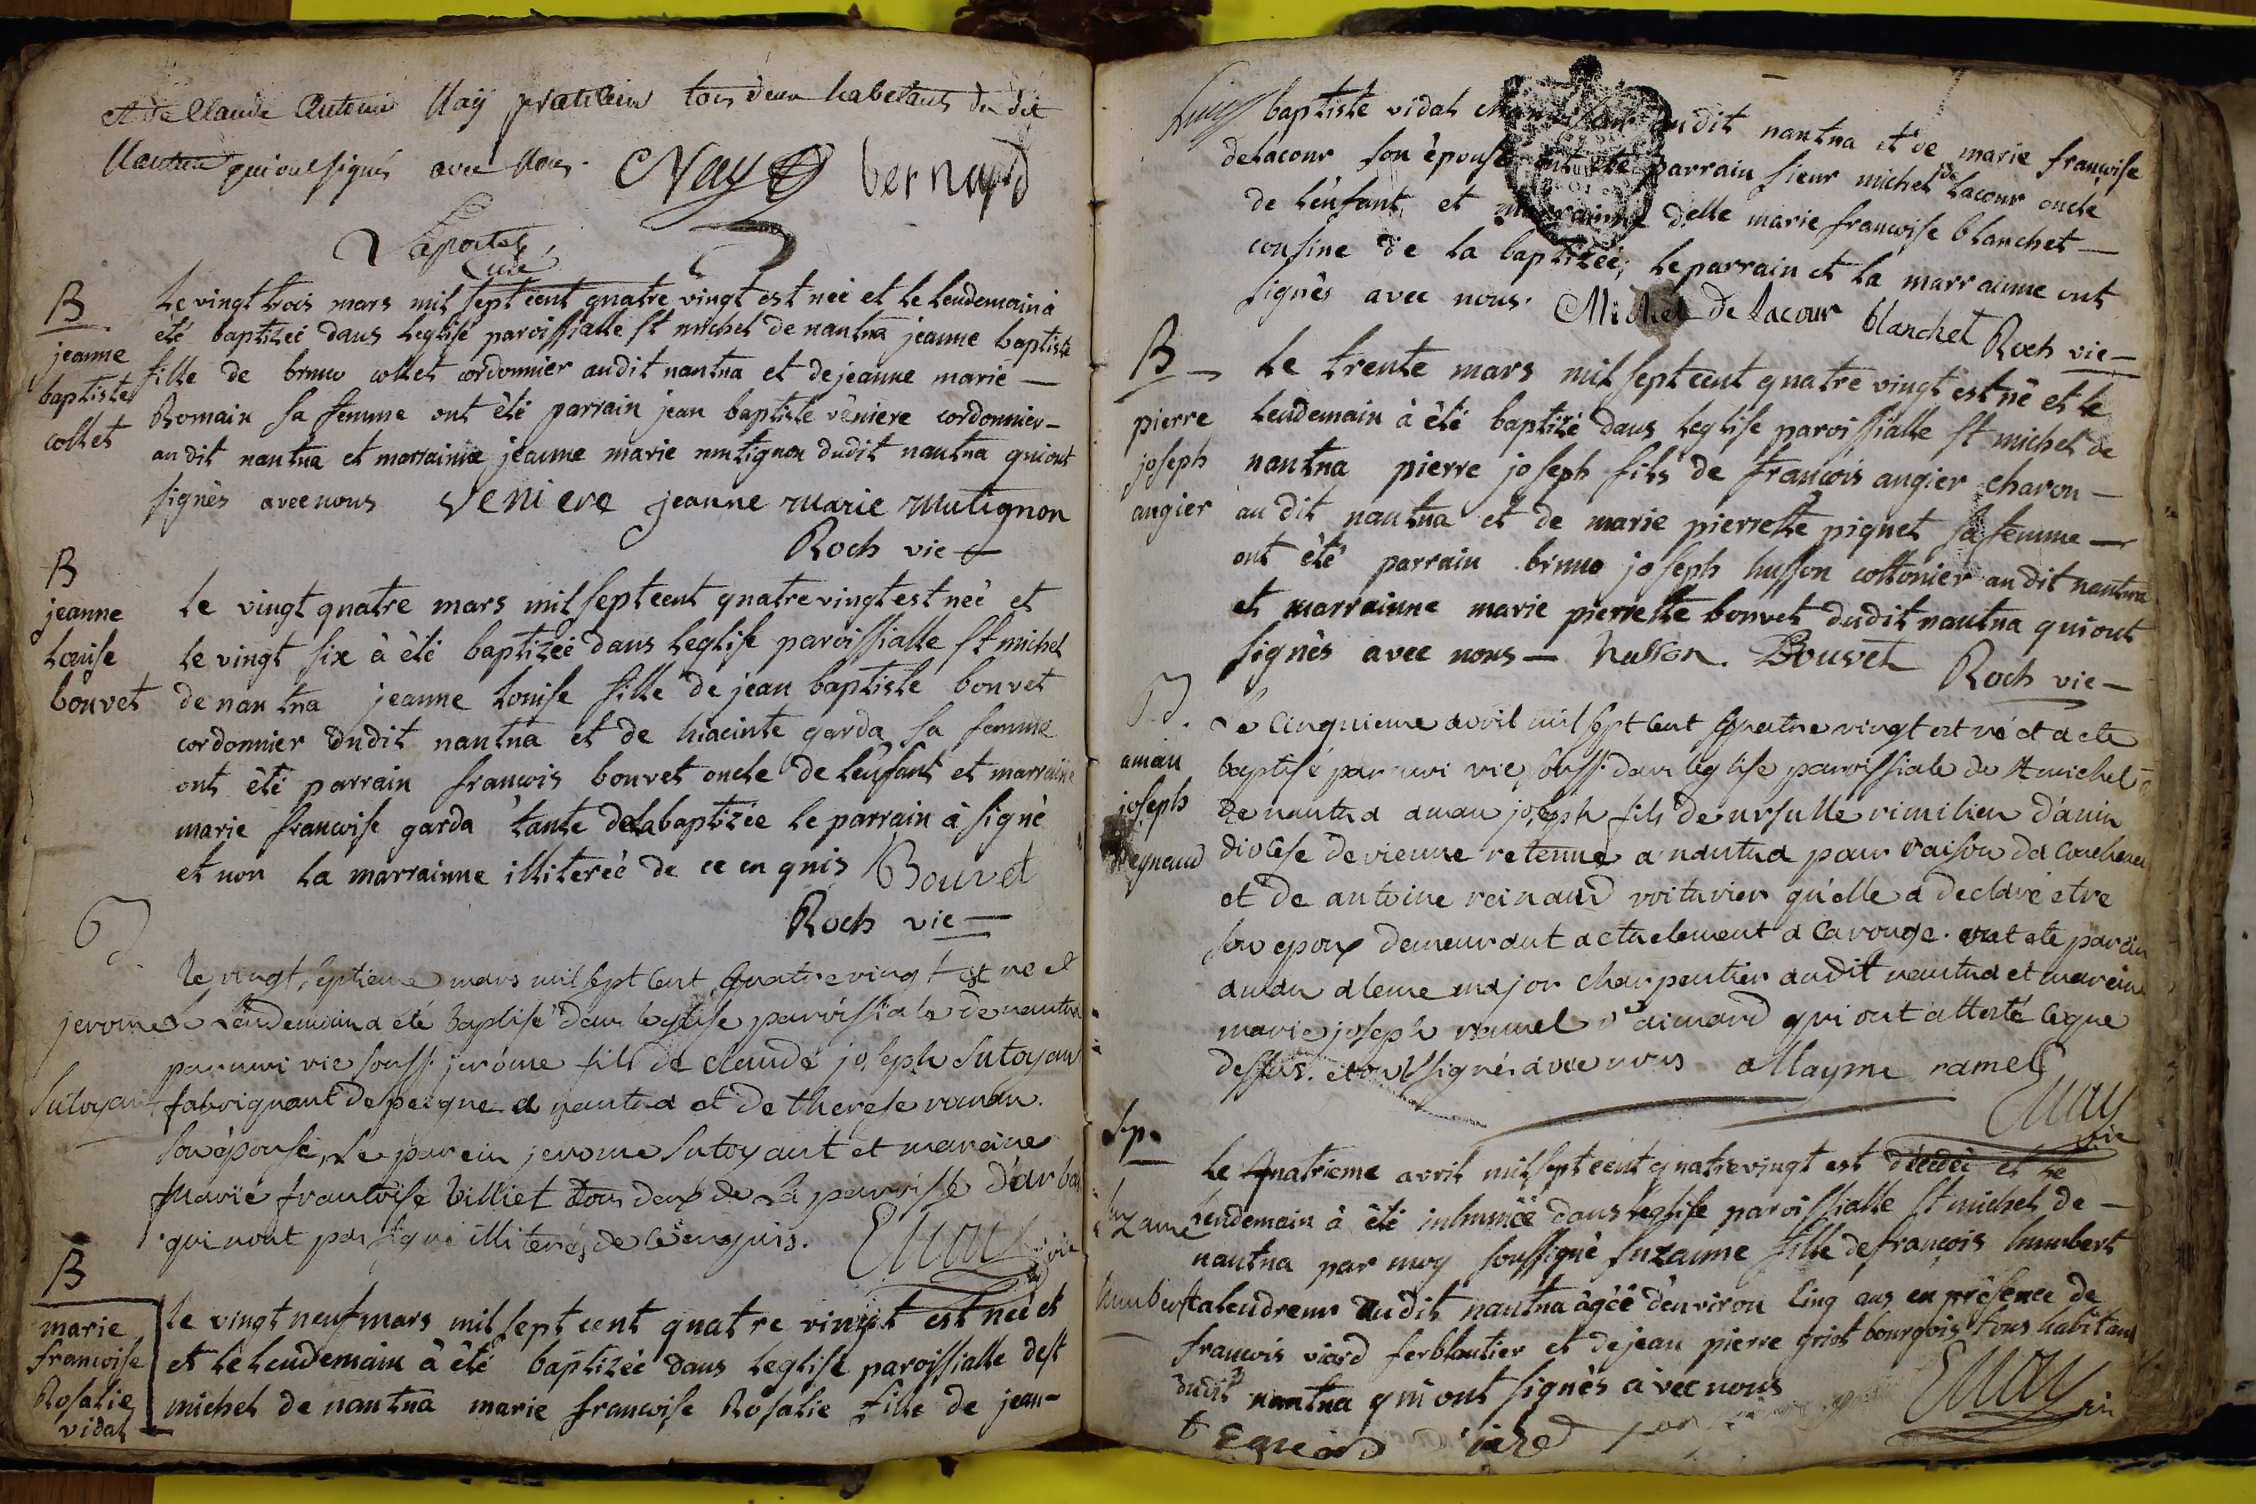 et de Claude Antoine Nay praticien tous deux habetants du dit
Nantua qui ont signés avec Nous. CNay bernard
Laportat
Curé
B
jeanne
baptiste
collet
Le vingt trois mars mil sept cent quatre vingt est neé et le lendemain à
eté baptizeé dans leglise paroissialle st michel de nantua jeanne baptiste
fille de bruno collet cordonnier audit nantua et de jeanne marie —
Romain sa femme ont été parrain jean baptiste véniere cordonnier —
audit nantua et marrainne jeanne marie mutignon dudit nantua qui ont
signés avec nous veniere jeanne marie mutignon
Roch vic —
B
jeanne
louise
bouvet
le vingt quatre mars mil sept cent quatre vingt est neé et
le vingt six à été baptizeé dans leglise paroissialle st michel
de nantua jeanne louise fille de jean baptiste bouvet
cordonnier dudit nantua et de hiacinte garda sa femme
ont été parrain francois bouvet oncle de l'enfant et marraine
marie francoise garda tante de la baptizée le parrain à signé
et non la marrainne illitereé de ce enquis Bouvet
Roch vic —
B
jerome
Sutoyant
le vingt septieme mars mil sept cent quatre vingt est né et
le Lendemain a eté Baptisé dans leglise paroissiale de nantua
par moi vic souss. jerôme fils de claude joseph Sutoyant
fabriquant de peigne a nantua et de therese
son épouse, Le parein jerome Sutoyant et mareine
Marie francoise billiet tous deux de la paroisse d'arban
qui nont pas signé illiterés de ce enquis. CNay vic
B
marie
francoise
Rosalie
vidal
le vingt neuf mars mil sept cent quatre vingt est neé et
et le lendemain à été baptizeé dans leglise paroissialle de st
michel de nantua marie francoise Rosalie fille de jean-
baptiste vidal audit nantua et de marie francoise
delacour son épouse ont eté parrain sieur michel de lacour oncle
de l'enfant et marrainne delle marie francoise blanchet —
cousine de la baptizeé; le parrain et la marrainne ont
signés avec nous. Michel de lacour blanchet Roch vic —
B —
pierre
joseph
augier
le trente mars mil sept cent quatre vingt est né et le
lendemain à été baptizé dans leglise paroissialle st michel de
nantua pierre joseph fils de françois augier charon —
audit nantua et de marie pierrette piquet sa femme —
ont été parrain bruno joseph husson cottonier audit nantua
et marrainne marie pierrette bouvet dudit nantua qui ont
signés avec nous — husson. Bouvet
Roch vic —
B.
aman
joseph
Reynaud
Le cinquieme avril mil sept cent quatre vingt est né et a ete
baptisé par moi vic souss. dans leglise paroissiale de st michel
de nantua aman joseph fils de ursulle rimilieu
diocese de vienne retenue a nantua pour raison de
et de antoine reinaud voiturier qu'elle a declaré etre
son epoux demeurant actuelement a Carouge. ont ete parein
aman aleme major charpentier audit nantua et mareine
marie joseph ramel aimard qui ont attesté ce que
dessus. et ont signés avec nous allayme ramel
CNay
vic
Sep.
Suzanne
humbert
le quatrieme avril mil sept cent quatre vingt est décédeé et le
lendemain à été inhumeé dans leglise paroissialle st michel de —
nantua par moy soussigné Suzanne fille de françois humbert
calendreur audit nantua âgeé d'environ cinq ans en présence de
francois viard ferblantier et de jean pierre griot bourgois tous habitans
dudit nantua qui ont signés avec nous CNay vic